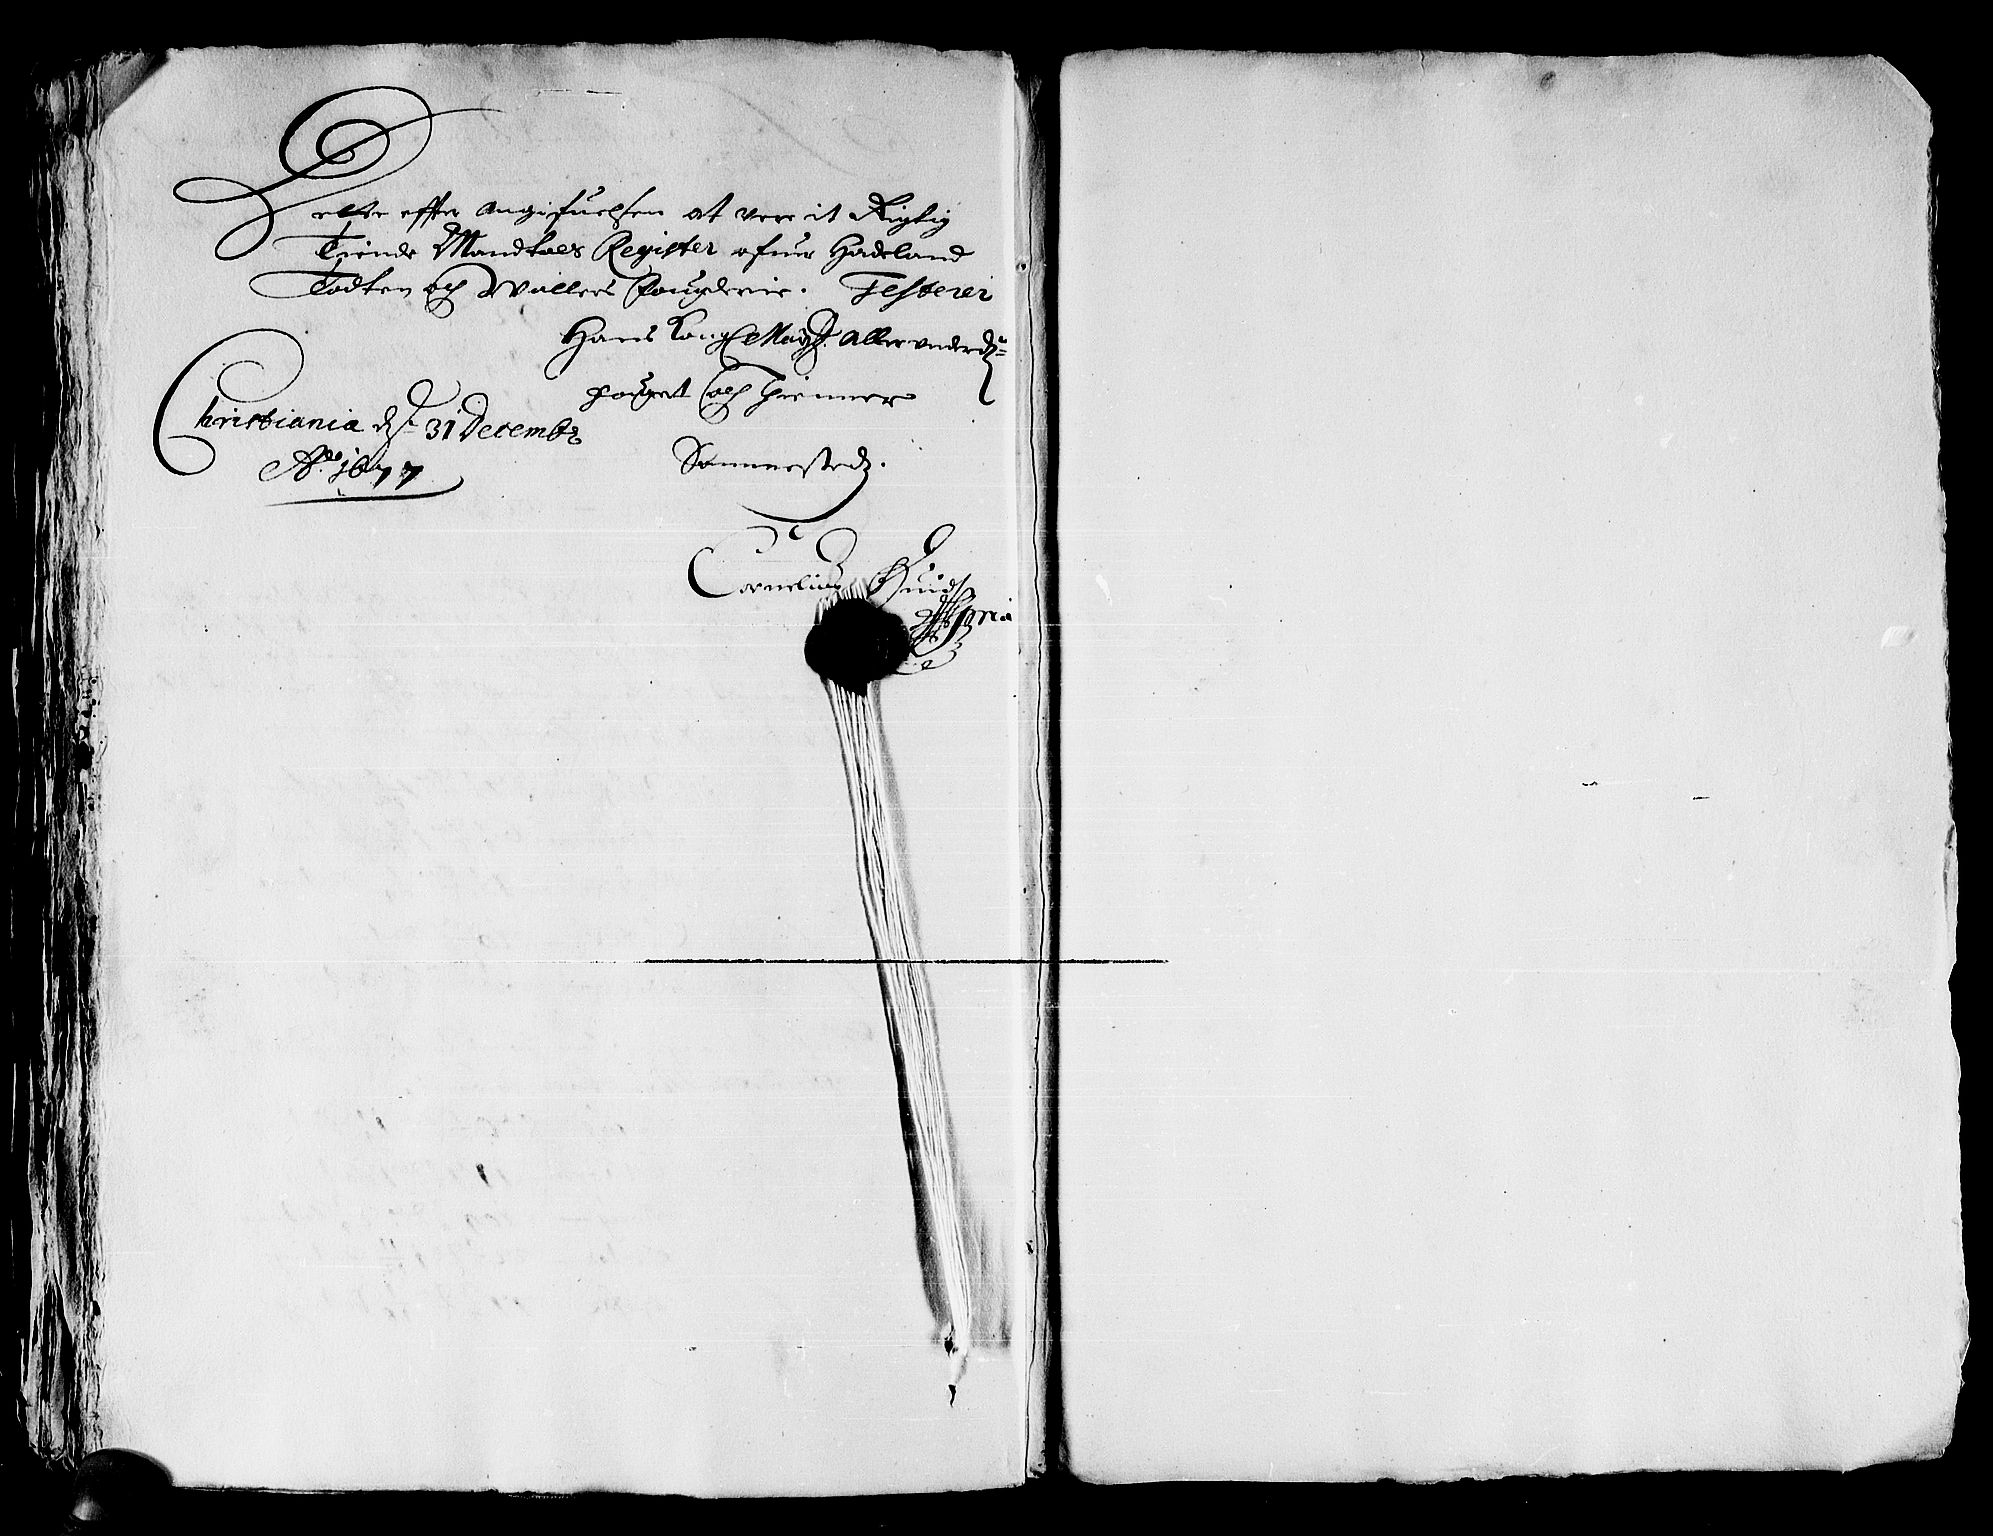 Dette effter angifuelsen at vere it Rigtig
Tiende Mandtals Register ofuer Hadeland
Todten och Walders fougderie. Testerer
Hans Kongl Mayst: Aller underd:
fouget och Thienner
Christiania dh: 31 Decemb:
Ao: 1677
Cornelius